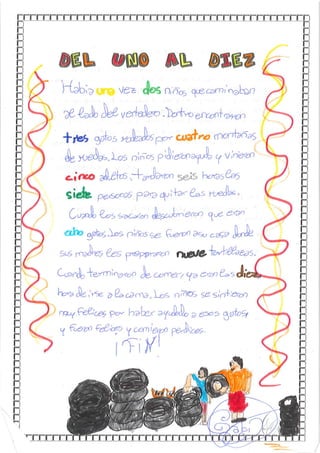 DEL UNO AL DIEZ
Había una vez dos niños que caminaban
al lado del vertedero. Dentro encontraron
tres gatos rodeados por cuatro montañas
de ruedas. Los niños pidieron ayuda y vinieron
cinco adultos. Tardaron seis horas las
siete personas para quitar las ruedas.
Cuando los sacaron descubrieron que eran
ocho gatos. Los niños se fueron a su casa donde
sus madres les prepararon nueve tortillazas.
Cuando terminaron de comer, ya eran las diez
hora de irse a la cama. Los niños se sintieron
muy felices por haber ayudado a esos gatos,
y fueron felices y comieron perdices.
¡FIN!